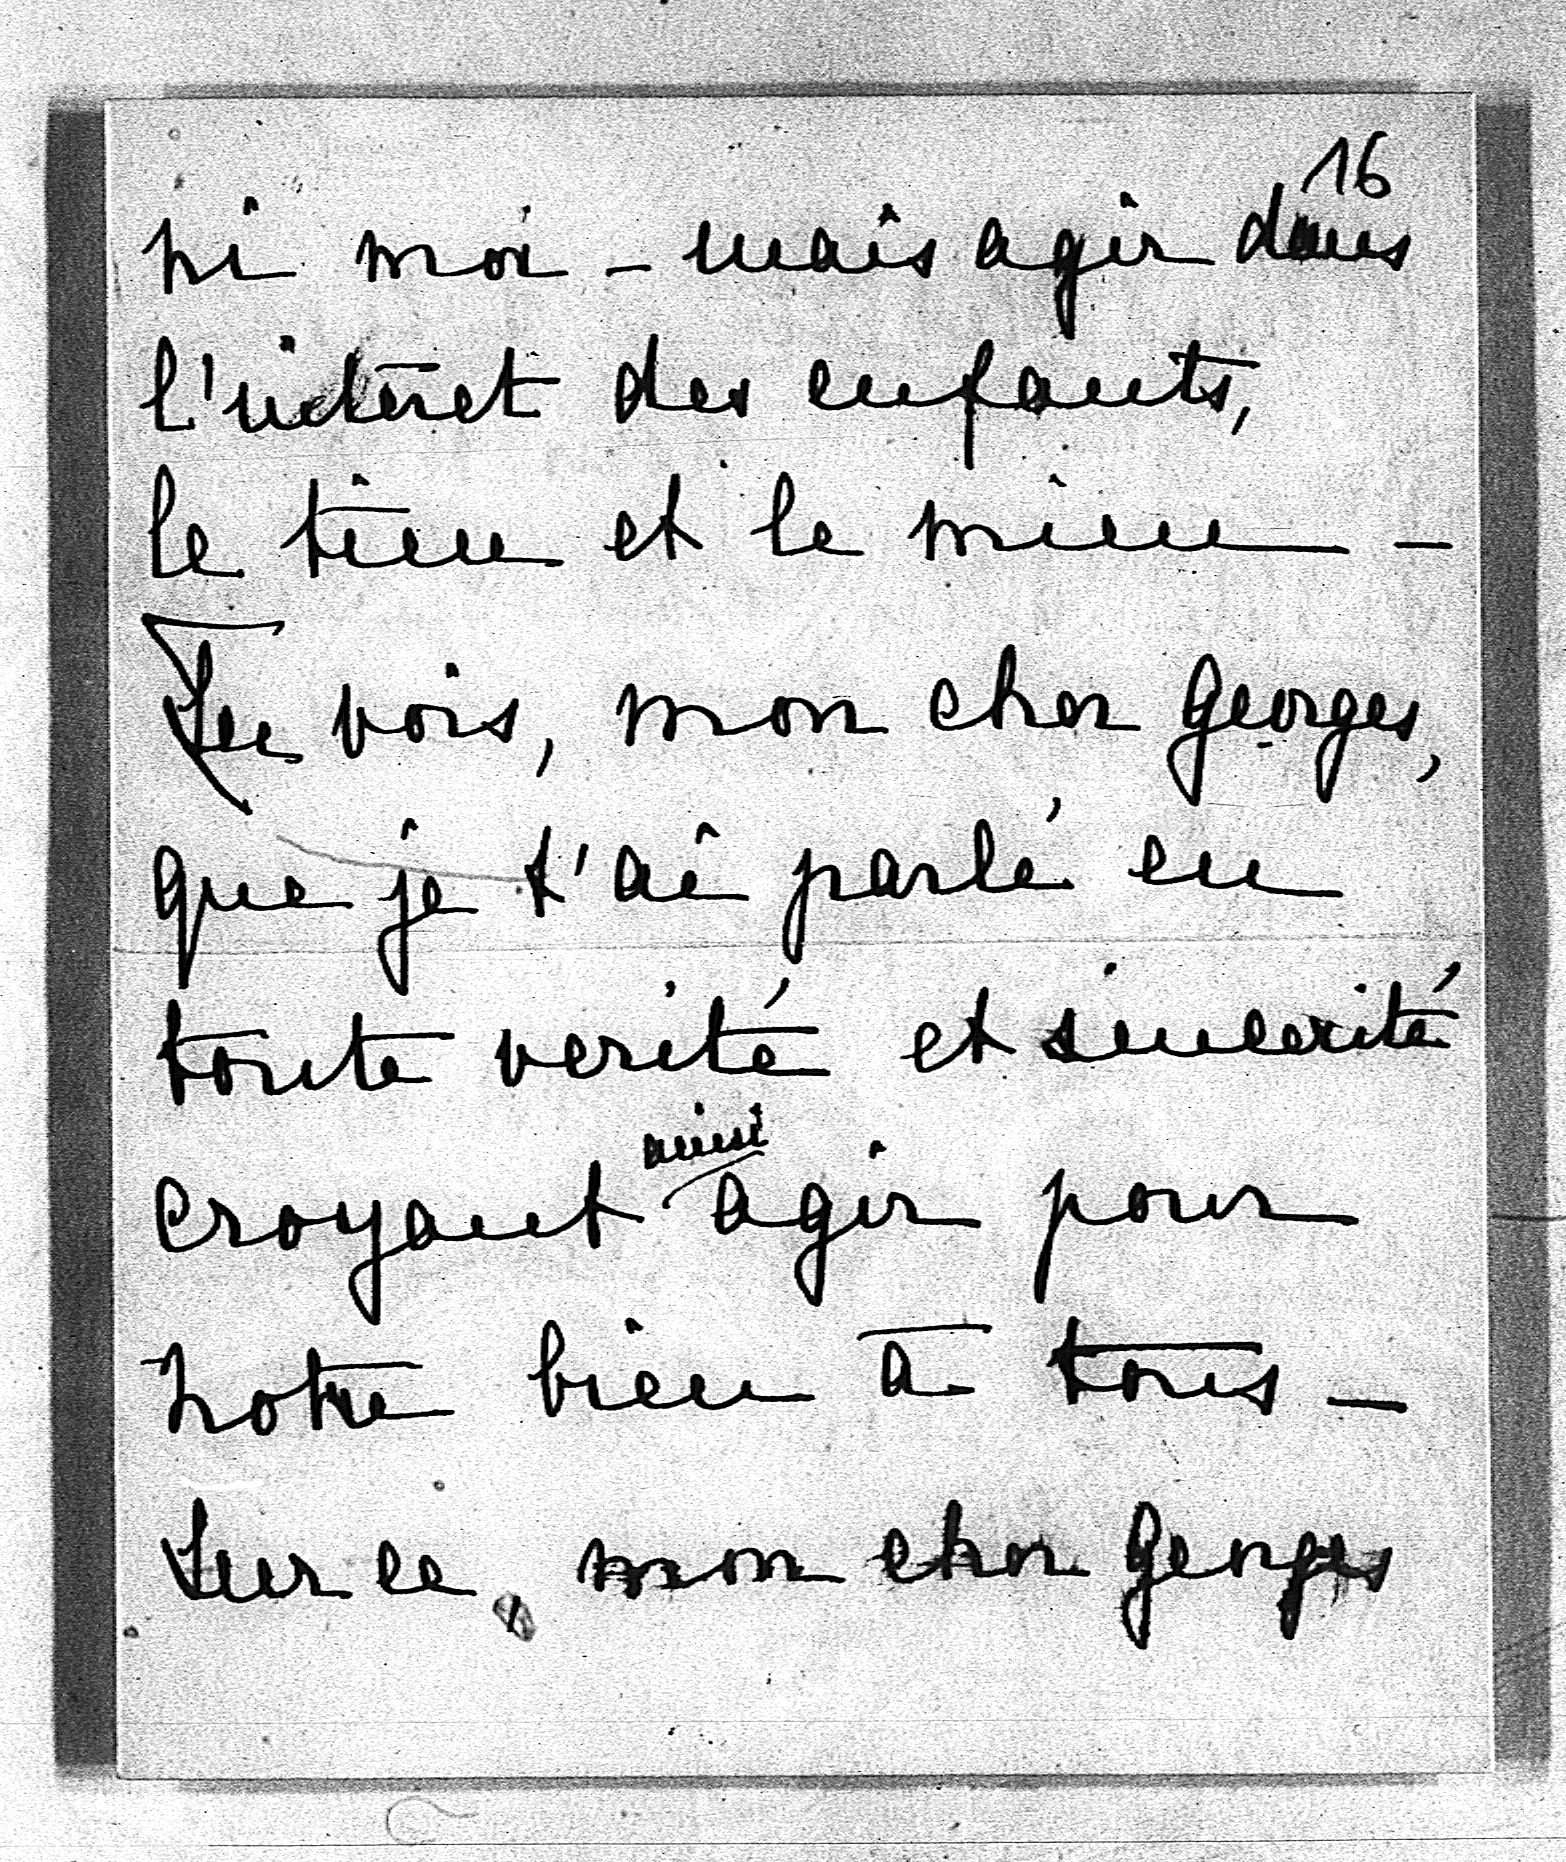 16
ni moi – mais agir dans
l'intérêt des enfants,
le tien et le mien –
Tu vois, mon cher Georges,
que je t'ai parlé en
toute verité et sincerité
croyant ainsi agir pour
notre bien à tous –
Sur ce, mon cher Georges